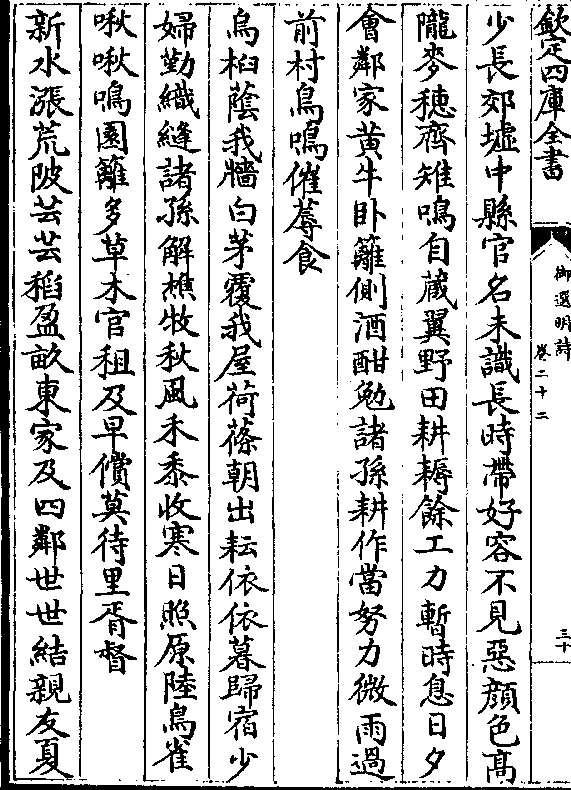 欽定四庫全書
御選明詩
卷二十二
三十
少長郊墟中縣官名未識長時帶好容不見惡顔色髙
隴麥穗齊雉鳴自藏翼野田耕耨餘工力暫時息日夕
會鄰家黄牛卧籬側酒酣勉諸孫耕作當努力微雨過
前村鳥鳴催蓐食
烏桕蔭我牆白茅覆我屋荷蓧朝出耘依依暮歸宿少
婦勤織縫諸孫解樵牧秋風禾黍收寒日照原陸鳥雀
啾啾鳴園籬多草木官租及早償莫待里胥督
新水漲荒陂芸芸稻盈畝東家及四鄰世世結親友夏